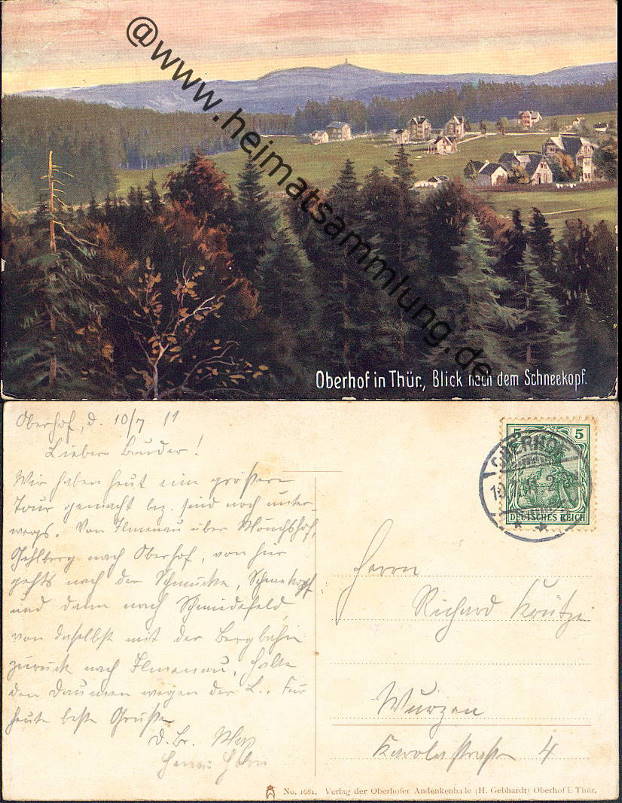 @www.heimatsammlung.de
Oberhof in Thür., Blick nach dem Schneekopf.
Oberhof, d. 10/7 11
Lieber Bruder!
Wir haben heut eine größere
Tour gemacht bez. sind noch unter-
wegs. Von Ilmenau über Mönchshof,
Gehlberg nach Oberhof, von hier
gehts nach der Schmücke, Schneekopf
und dann nach Schmiedefeld
von daselbst mit der Bergbahn
zurück nach Ilmenau, halte
den Daumen wegen der L.. Für
heute beste Grüße
d. Br. Max
OBERHOF
5 5
DEUTSCHES REICH
Herrn
Richard
Wurzen
Karolastraße 4
No. 1681. Verlag der Oberhofer Andenkenhalle (H. Gebhardt) Oberhof i. Thür.